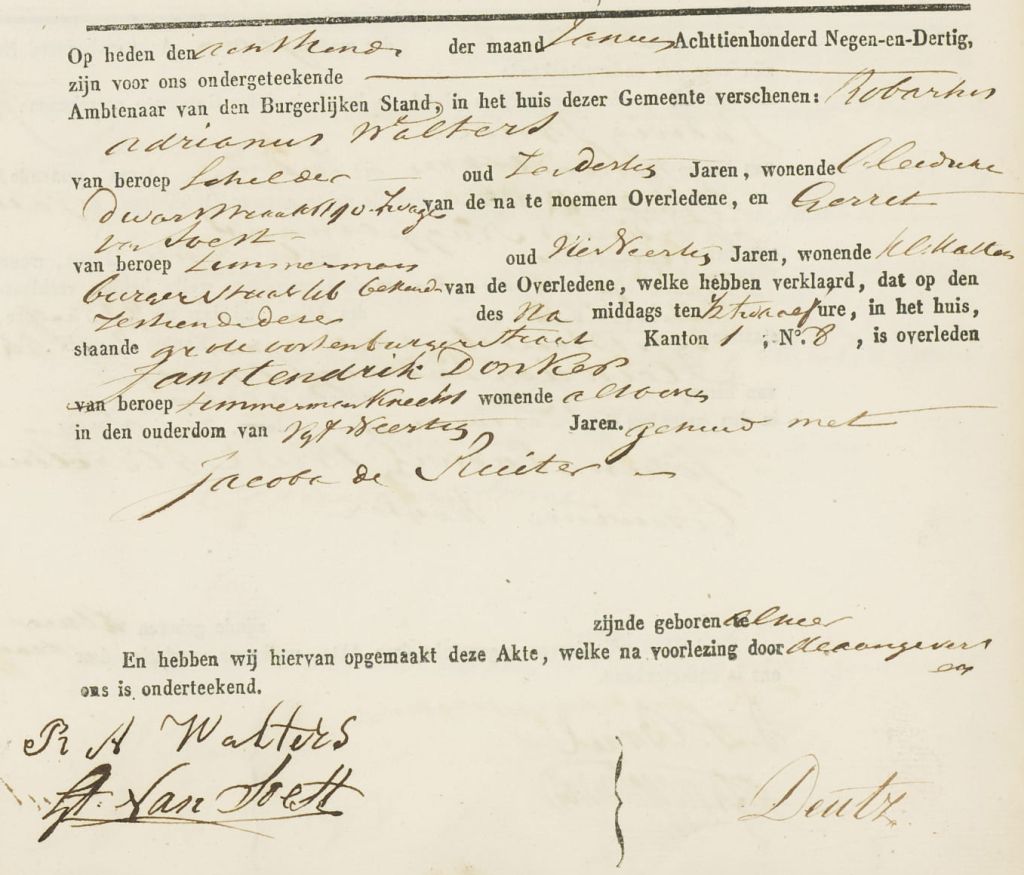 Op heden den achttiende der maand Januarij Achttienhonderd Negen-en-Dertig,
zijn voor ons ondergeteekende
Ambtenaar van den Burgerlijken Stand, in het huis dezer Gemeente verschenen: Robartus
Adrianus Walters
van beroep Schilder oud Jaren, wonende Leidsche
Dwarsstraat 190 Zwager van de na te noemen Overledene, en Gerret
van Soest
van beroep Timmerman oud Jaren, wonende
burgerstraat bekende van de Overledene, welke hebben verklaard, dat op den
Zestiende dezer des Na middags ten ure, in het huis,
staande grote oostenburgerstraat Kanton 1, No. 8, is overleden
Jan Hendrik Donker
van beroep Timmermansknecht wonende aldaar
in den ouderdom van Jaren. gehuwd met
Jacoba de Ruiter
zijnde geboren te alhier
En hebben wij hiervan opgemaakt deze Akte, welke na voorlezing door de aangevers
en
ons is onderteekend.
R A Walters
Gt. Van Soest
Deutz